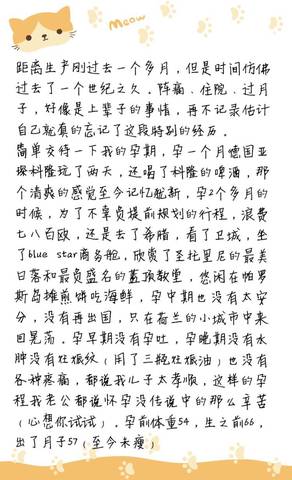 Meow
距离生产刚过去一个多月，但是时间仿佛
过去了一个世纪之久．阵痛、住院、过月
子，好像是上辈子的事情，再不记录估计
自己就真的忘记了这段特别的经历．
简单交待一下我的孕期，孕一个月德国亚
琛科隆玩了两天，还喝了科隆的啤酒，那
个清爽的感觉至今记忆犹新，孕2个多月的
时候，为了不辜负提前规划的行程，浪费
七八百欧，还是去了希腊，看了卫城，坐
了blue star商务舱，欣赏了圣托里尼的最美
日落和最负盛名的蓝顶教堂，悠闲在帕罗
斯岛摊煎饼吃海鲜，孕中期也没有太安
分，没有再出国，只在荷兰的小城市中来
回晃荡．孕早期没有孕吐，孕晚期没有水
肿没有妊娠纹（用了三瓶妊娠油）也没有
各种疼痛，都说我儿子太孝顺，这样的孕
程我老公都说怀孕没传说中的那么辛苦
（心想你试试）．孕前体重54，生之前66，
出了月子57（至今未瘦）